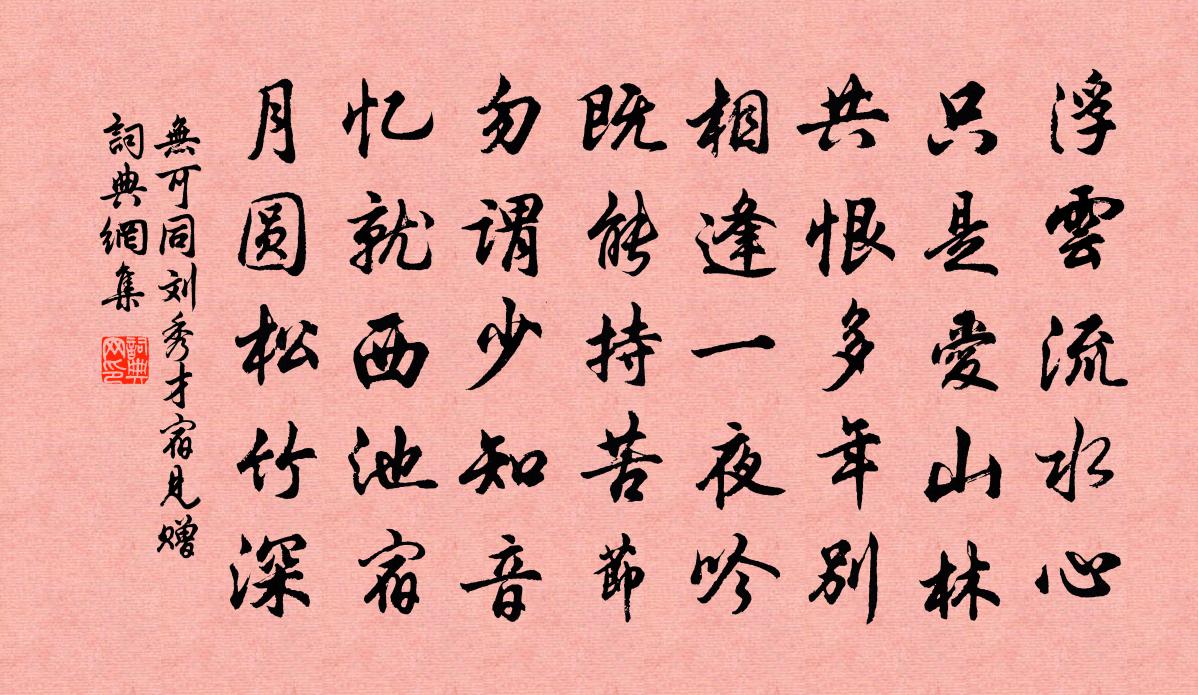 浮雲流水心
只是愛山林
共恨多年別
相逢一夜吟
既能持苦節
勿謂少知音
忆就西池宿
月圆松竹深
無可同刘秀才宿見贈
詞典網集
詞典网印